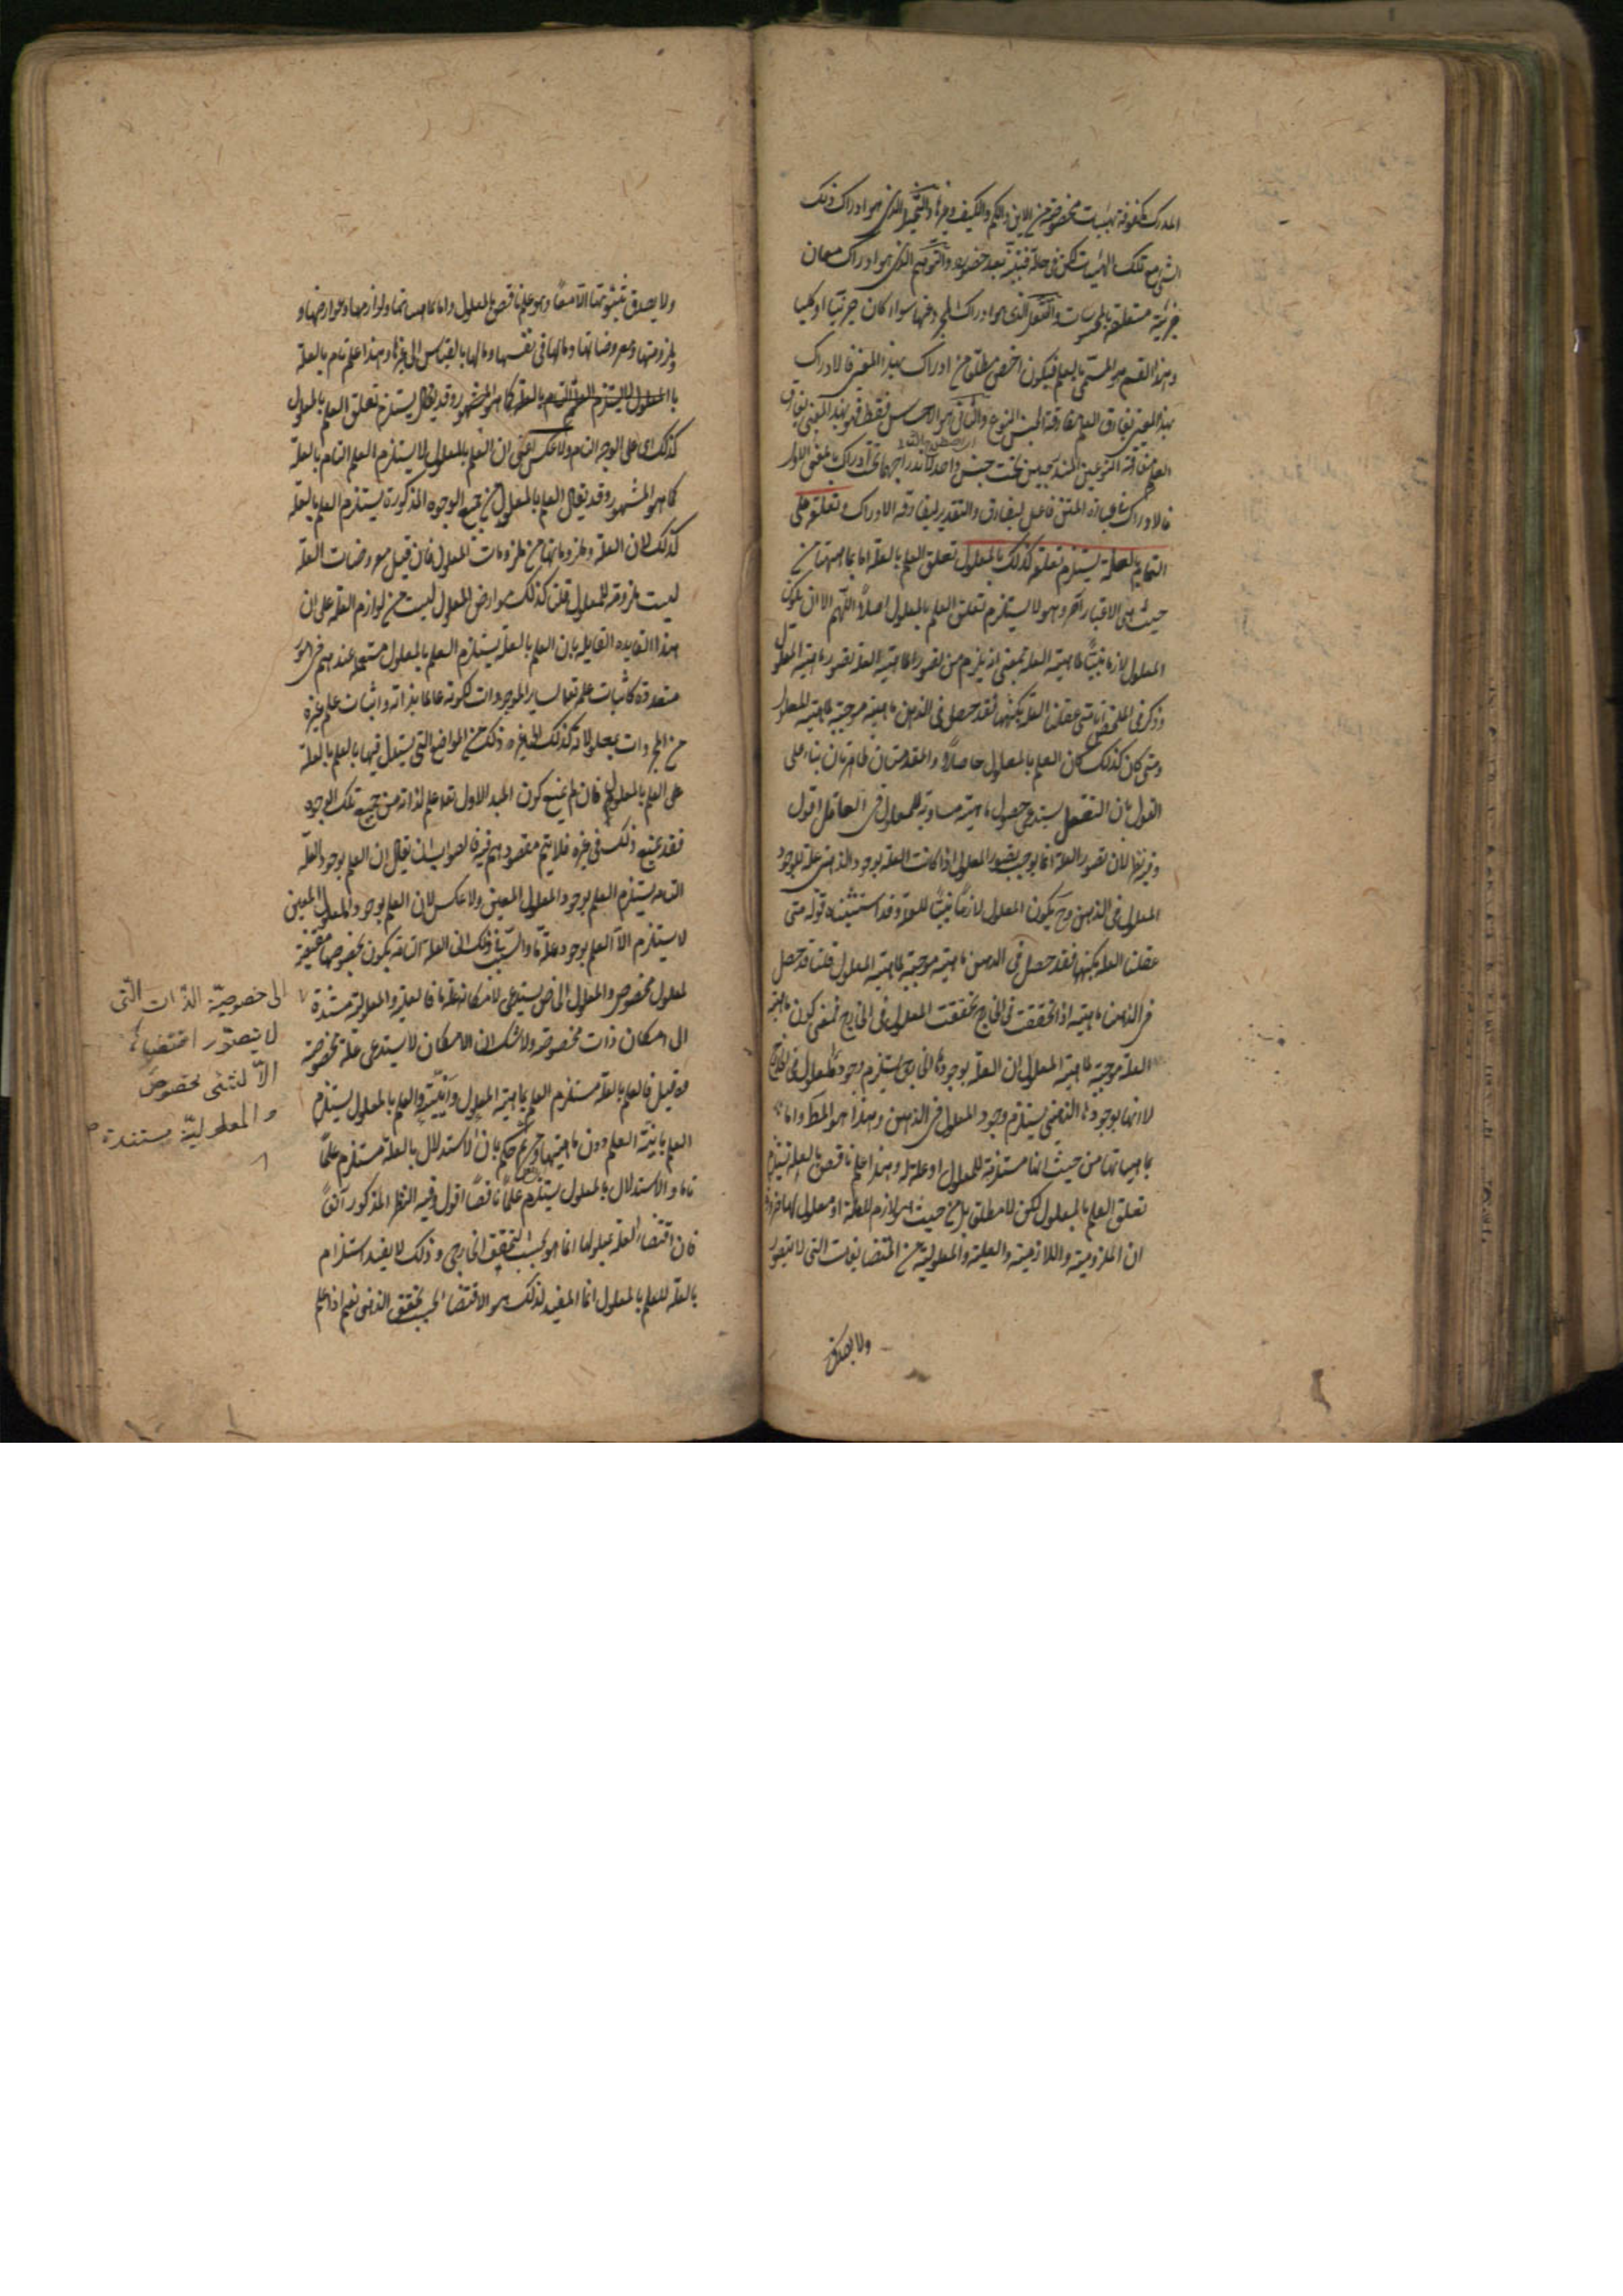 المدرك مكفوفة بهيئات مخصوصة من الاين والكم والكيف وغيرها والتخيل الذى هو ادراك ذلك
الشئ مع تلك الهيئات لكن فى حالة غيبته بعد حضوره والتوهم الذى هو ادراك معان
جزئية متعلقة بالمحسوسات والتعقل الذى هو ادراك المجرد عنها سواء كان جزئيا او كليا
وهذا القسم هو المسمى بالعلم فيكون اخص مطلقا من ادراك بهذا المعنى فالادراك
بهذا المعنى يفارق العلم مفارقة الجنس النوع والثانى هو الاحساس فقط فهو بهذا المعنى يفارق
العلم مفارقة النوعين المندرجين تحت جنس واحد لاندراجهما تحت ادراك بالمعنى الاول
فالادراك فى عبارة المتن فاعل ليفارق والتقدير ليفارقه الادراك وتعلقه على
التمام بالعلة يستلزم تعلقه كذلك بالمعلول تعلق العلم بالعلة اما بماهيتها من
حيث هى لا اعتبار آخر وهو لا يستلزم تعلق العلم بالمعلول اصلا اللهم الا ان يكون
المعلول لازما بينا لماهية العلة بمعنى انه يلزم من تصور ماهية العلة تصور ماهية المعلول
وذكر فى الملخص انا متى عقلنا العلة بكنهها فقد حصل فى الذهن ماهية موجبة لماهية المعلول
ومتى كان كذلك كان العلم بالمعلول حاصلا والمقدمتان ظاهرتان بناء على
القول بان التعقل يستدعى حصول ماهية مساوية للمعلول فى العاقل اقول
وفيه نظر لان تصور العلة انما يوجب تصور المعلول اذا كانت العلة بوجودها الذهنى علة لوجود
المعلول فى الذهن وح يكون المعلول لازما بينا للعلة وقد استثنيناه قوله متى
عقلنا العلة بكنهها فقد حصل فى الذهن ماهية موجبة لماهية المعلول قلنا قد حصل
فى الذهن ماهية اذا تحققت فى الخارج تحققت المعلول فى الخارج فمعنى كون ماهية
العلة موجبة لماهية المعلول ان العلة بوجودها الخارجى يستلزم وجود المعلول فى الخارج
لا انها بوجودها الذهنى يستلزم وجود المعلول فى الذهن وهذا هو المط واما
بماهياتها من حيث انها مستلزمة للمعلول او علة له وهذا علم ناقص بالعلة يستلزم
تعلق العلم بالمعلول لكن لا مطلق بل من حيث هو لازم للعلة او معلول لها ضرورة
ان الملزومية واللازمية والعلية والمعلولية من المتضايفات التى لا يتصور
ولا يصدق
ولا يصدق بثبوتها الا معا وهو علم ناقص بالمعلول واما بماهياتها ولوازمها وعوارضها و
ملزوماتها ومعروضاتها ومالها فى نفسها ومالها بالقياس الى غيرها وهذا علم تام بالعلة
بالمعلول لا يستلزم العلم التام بالعلة كما هو المشهور وقد يقال يستلزم تعلق العلم بالمعلول
كذلك اى على الوجه التام ولا عكس اعنى ان العلم بالمعلول لا يستلزم العلم التام بالعلة
كما هو المشهور وقد يقال العلم بالمعلول من جميع الوجوه المذكورة يستلزم العلم بالعلة
كذلك لان العلة وملزوماتها من ملزومات المعلول فان قيل معروضات العلة
ليست ملزومة للمعلول قلنا كذلك عوارض المعلول ليست من لوازم العلة على ان
هذا القاعده القايله بان العلم بالعلة يستلزم العلم بالمعلول مستعملة عندهم فى امور
متعددة كاثبات علمه تعالى بساير الموجودات لكونه عالما بذاته واثبات علم غيره
من المجردات بمعلولاته كذلك الى غير ذلك من المواضع التى يستدل فيها بالعلم بالعلة
على العلم بالمعلول فان لم يمتنع كون المبدا الاول تعالى علم لذاته من جميع تلك الوجوه
فقد يمتنع ذلك فى غيره فلا يتم مقصودهم فيه فالصواب ان يقال ان العلم بوجود العلة
التامة يستلزم العلم بوجود المعلول المعين ولا عكس لان العلم بوجود المعلول المعين
لا يستلزم الا العلم بوجود علة ما والسبب فى ذلك ان العلة التامة يكون بخصوصها مقتضية
لمعلول مخصوص والمعلول الخاص يستدعى لامكانه علة ما فالعلية والمعلولية مستندة
الى امكان ذات مخصوصة ولا شك ان الامكان لا يستدعى علة مخصوصة
قيل فالعلم بالعلة مستلزم العلم بماهية المعلول وانيته والعلم بالمعلول يستلزم
العلم بانية العلم دون ماهيتها وح حكم بان الاستدلال بالعلة مستلزم علما
تاما والاستدلال بالمعلول يستلزم علما ناقصا اقول وفيه النظر المذكور آنفا
فان اقتضاء العلة لمعلولها انما هو بحسب التحقق الخارجى وذلك لا يفيد استلزام
بالعلة للعلم بالمعلول انما المفيد لذلك هو الاقتضاء بحسب تحقق الذهنى نعم اذا علم
الى خصوصية الذات التى
لا يتصور اقتضاها
الا لشئ مخصوص
والمعلولية مستندة